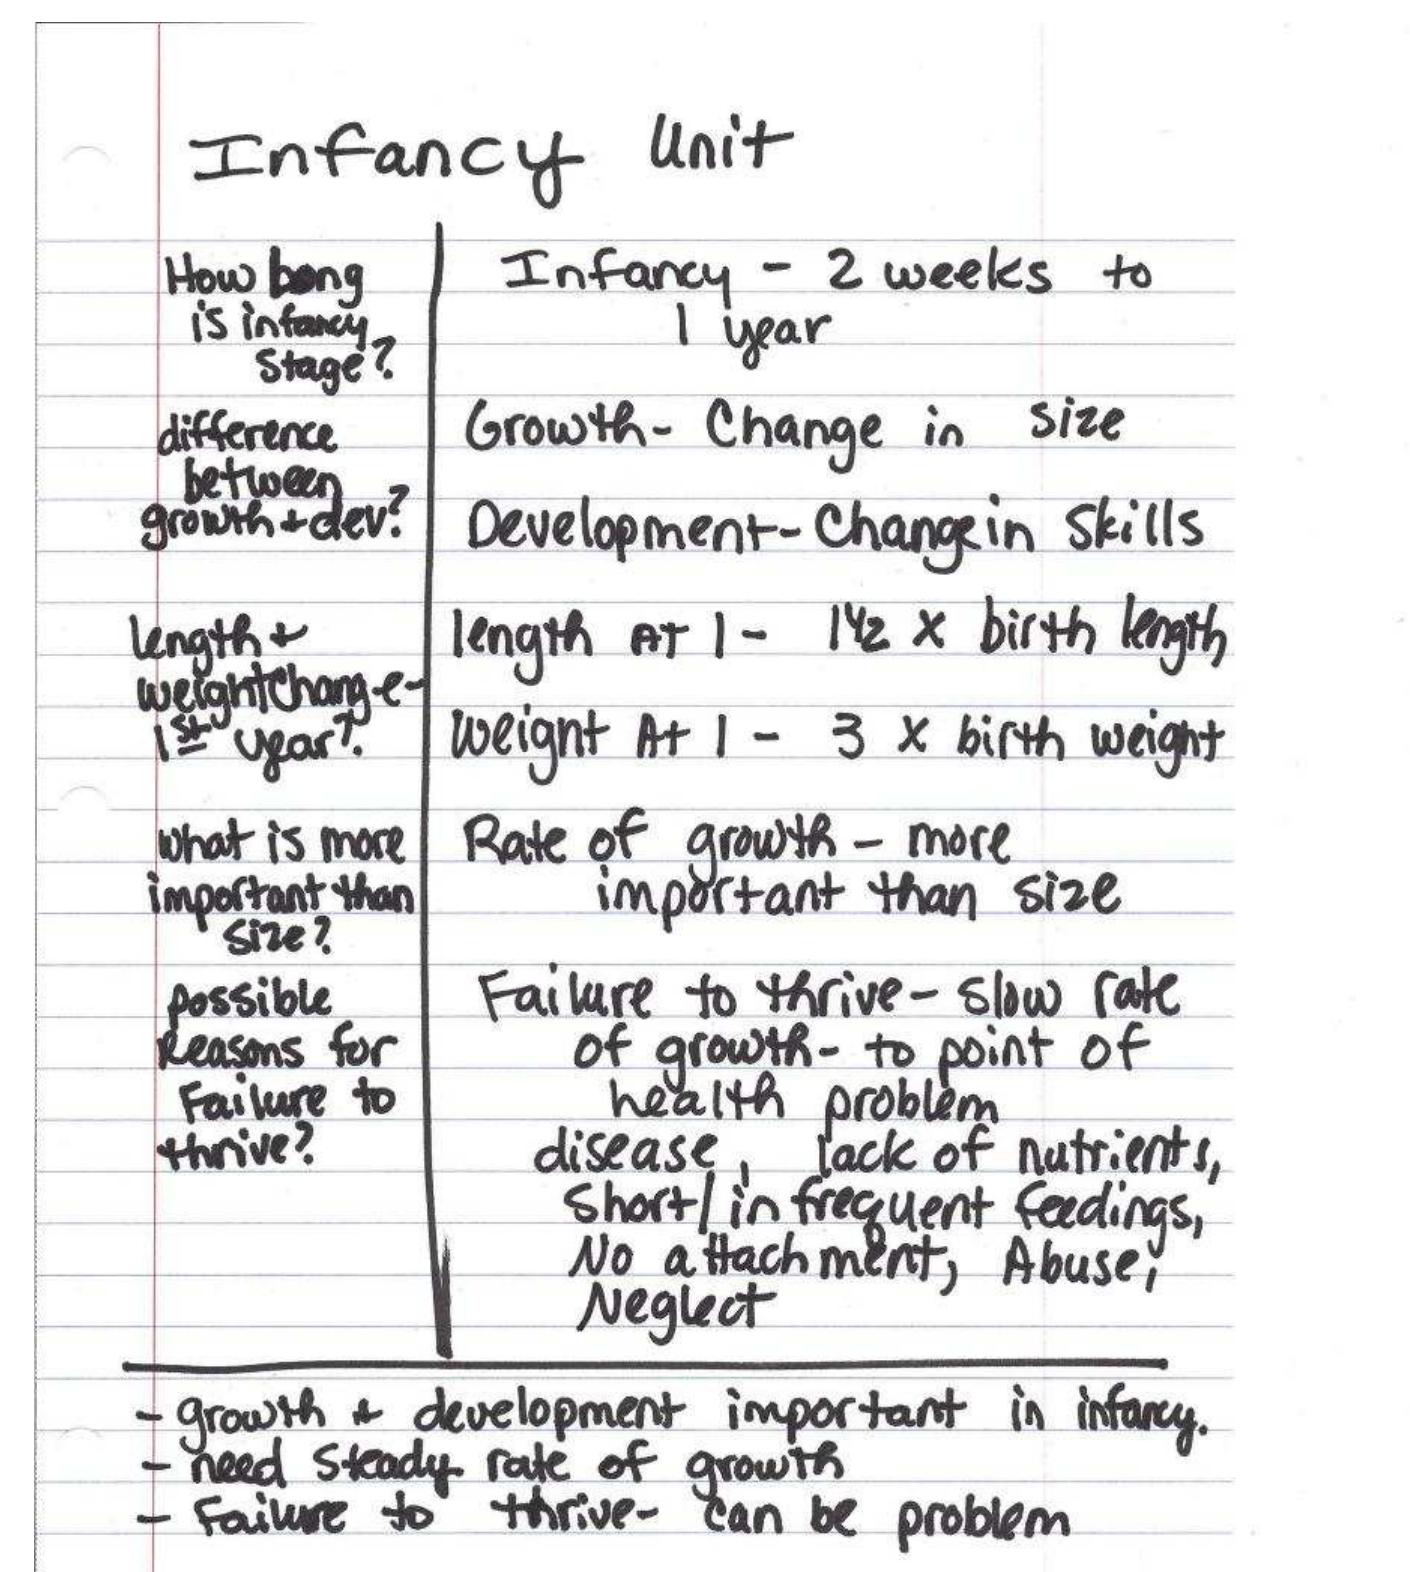 Infancy Unit
How long
is infancy
stage?
Infancy - 2 weeks to
1 year
difference
between
growth + dev?
Growth - Change in size
Development - Change in skills
length +
weight change -
1st year?
length At 1 - 1 1/2 x birth length
weight At 1 - 3 x birth weight
what is more
important than
size?
Rate of growth - more
important than size
possible
Reasons for
Failure to
thrive?
Failure to thrive - slow rate
of growth - to point of
health problem
disease, lack of nutrients,
Short/infrequent feedings,
No attachment, Abuse,
Neglect
- growth + development important in infancy.
- need steady rate of growth
- Failure to thrive - can be problem